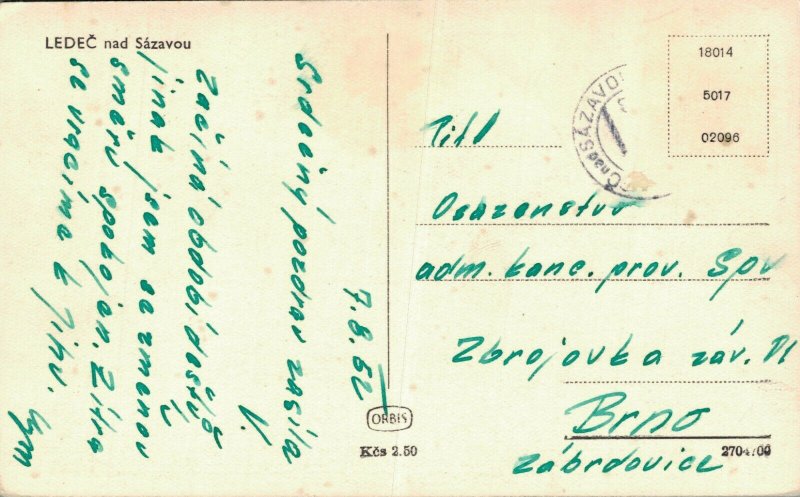 LEDEČ nad Sázavou
7.8.52
Srdečný pozdrav zasílá
V.
Začíná období dešťů
jinak jsem se změnou
směru spokojen. Zítra
se vracíme k jihu.
18014
5017
02096
Č nad SÁZAVO
Titl
Osazenstvo
adm. kanc. prov. Spr
Zbrojovka záv.
Brno
Zábrdovice
ORBIS
Kčs 2.50